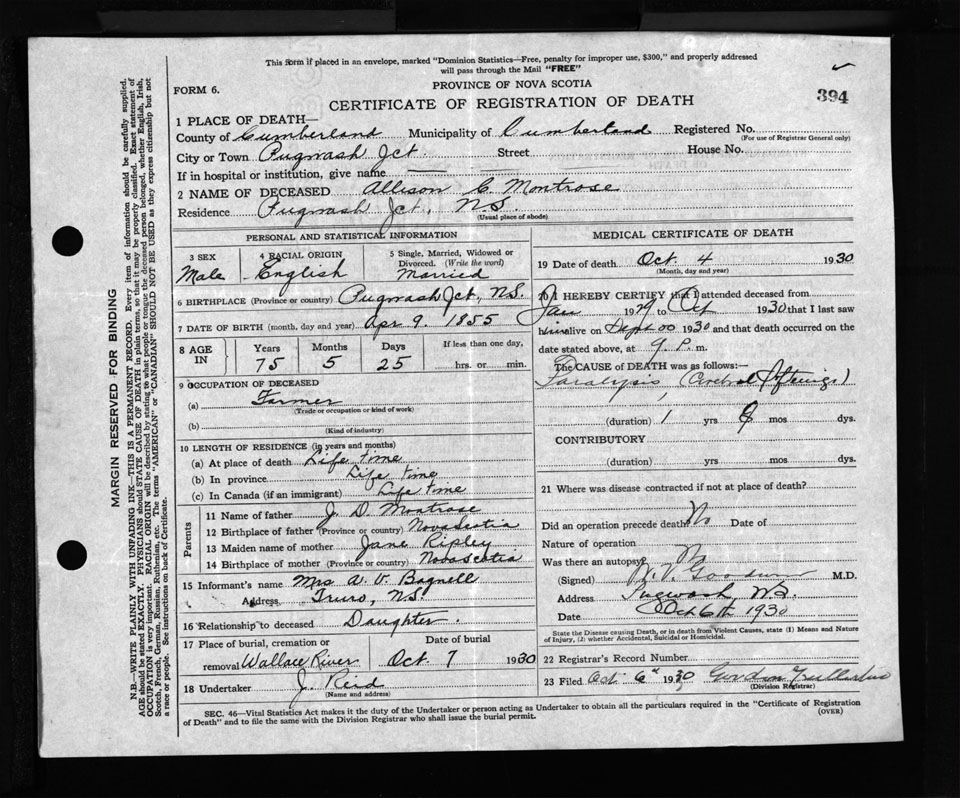 This form if placed in an envelope, marked "Dominion Statistics—Free, penalty for improper use, $300," and properly addressed
will pass through the Mail "FREE"
FORM 6.
PROVINCE OF NOVA SCOTIA
394
CERTIFICATE OF REGISTRATION OF DEATH
1 PLACE OF DEATH—
County of Cumberland Municipality of Cumberland Registered No.
(For use of Registrar General only)
City or Town Pugwash Jct. Street House No.
If in hospital or institution, give name
2 NAME OF DECEASED Allison C. Montrose
Residence Pugwash Jct, N.S.
(Usual place of abode)
PERSONAL AND STATISTICAL INFORMATION
3 SEX
Male
4 RACIAL ORIGIN
English
5 Single, Married, Widowed or
Divorced. (Write the word)
Married
6 BIRTHPLACE (Province or country) Pugwash Jct., N.S.
7 DATE OF BIRTH (month, day and year) Apr 9. 1855
8 AGE IN
Years Months Days If less than one day,
75 5 25 hrs. or min.
9 OCCUPATION OF DECEASED
(a) Farmer
(Trade or occupation or kind of work)
(b)
(Kind of industry)
10 LENGTH OF RESIDENCE (in years and months)
(a) At place of death Life time
(b) In province Life time
(c) In Canada (if an immigrant) Life time
Parents
11 Name of father J. D. Montrose
12 Birthplace of father (Province or country) Nova Scotia
13 Maiden name of mother Jane Ripley
14 Birthplace of mother (Province or country) Nova Scotia
15 Informant's name Mrs A. V. Bagnell
Address Truro, N.S.
16 Relationship to deceased Daughter.
17 Place of burial, cremation or Date of burial
removal Wallace River Oct. 7 1930
18 Undertaker J. Reid
(Name and address)
MEDICAL CERTIFICATE OF DEATH
19 Date of death Oct. 4 1930
(Month, day and year)
20 I HEREBY CERTIFY that I attended deceased from
Jan 1929 to Oct 1930 that I last saw
him alive on Sept 1930 and that death occurred on the
date stated above, at 9. P. m.
The CAUSE OF DEATH was as follows:—
Paralysis (Cerebral
(duration) 1 yrs 8 mos dys.
CONTRIBUTORY
(duration) yrs mos dys.
21 Where was disease contracted if not at place of death?
Did an operation precede death? No Date of
Nature of operation
Was there an autopsy? No
(Signed) Goodwin M.D.
Address Pugwash, N.S.
Date Oct 6th 1930
State the Disease causing Death, or in death from Violent Causes, state (1) Means and Nature
of Injury, (2) whether Accidental, Suicidal or Homicidal.
22 Registrar's Record Number
23 Filed Oct. 6th 1930 Gordon
(Division Registrar)
SEC. 46—Vital Statistics Act makes it the duty of the Undertaker or person acting as Undertaker to obtain all the particulars required in the "Certificate of Registration
of Death" and to file the same with the Division Registrar who shall issue the burial permit.
(OVER)
MARGIN RESERVED FOR BINDING
N.B.—WRITE PLAINLY WITH UNFADING INK—THIS IS A PERMANENT RECORD. Every item of information should be carefully supplied.
AGE should be stated EXACTLY. PHYSICIANS should STATE CAUSE OF DEATH in plain terms, so that it may be properly classified. Exact statement of
OCCUPATION is very important. RACIAL ORIGIN will be described by stating to what people or tongue the deceased person belonged, whether English, Irish,
Scotch, French, German, Russian, Ruthenian, etc. The terms "AMERICAN" or "CANADIAN" SHOULD NOT BE USED as they express citizenship but not
a race or people. See instructions on back of Certificate.